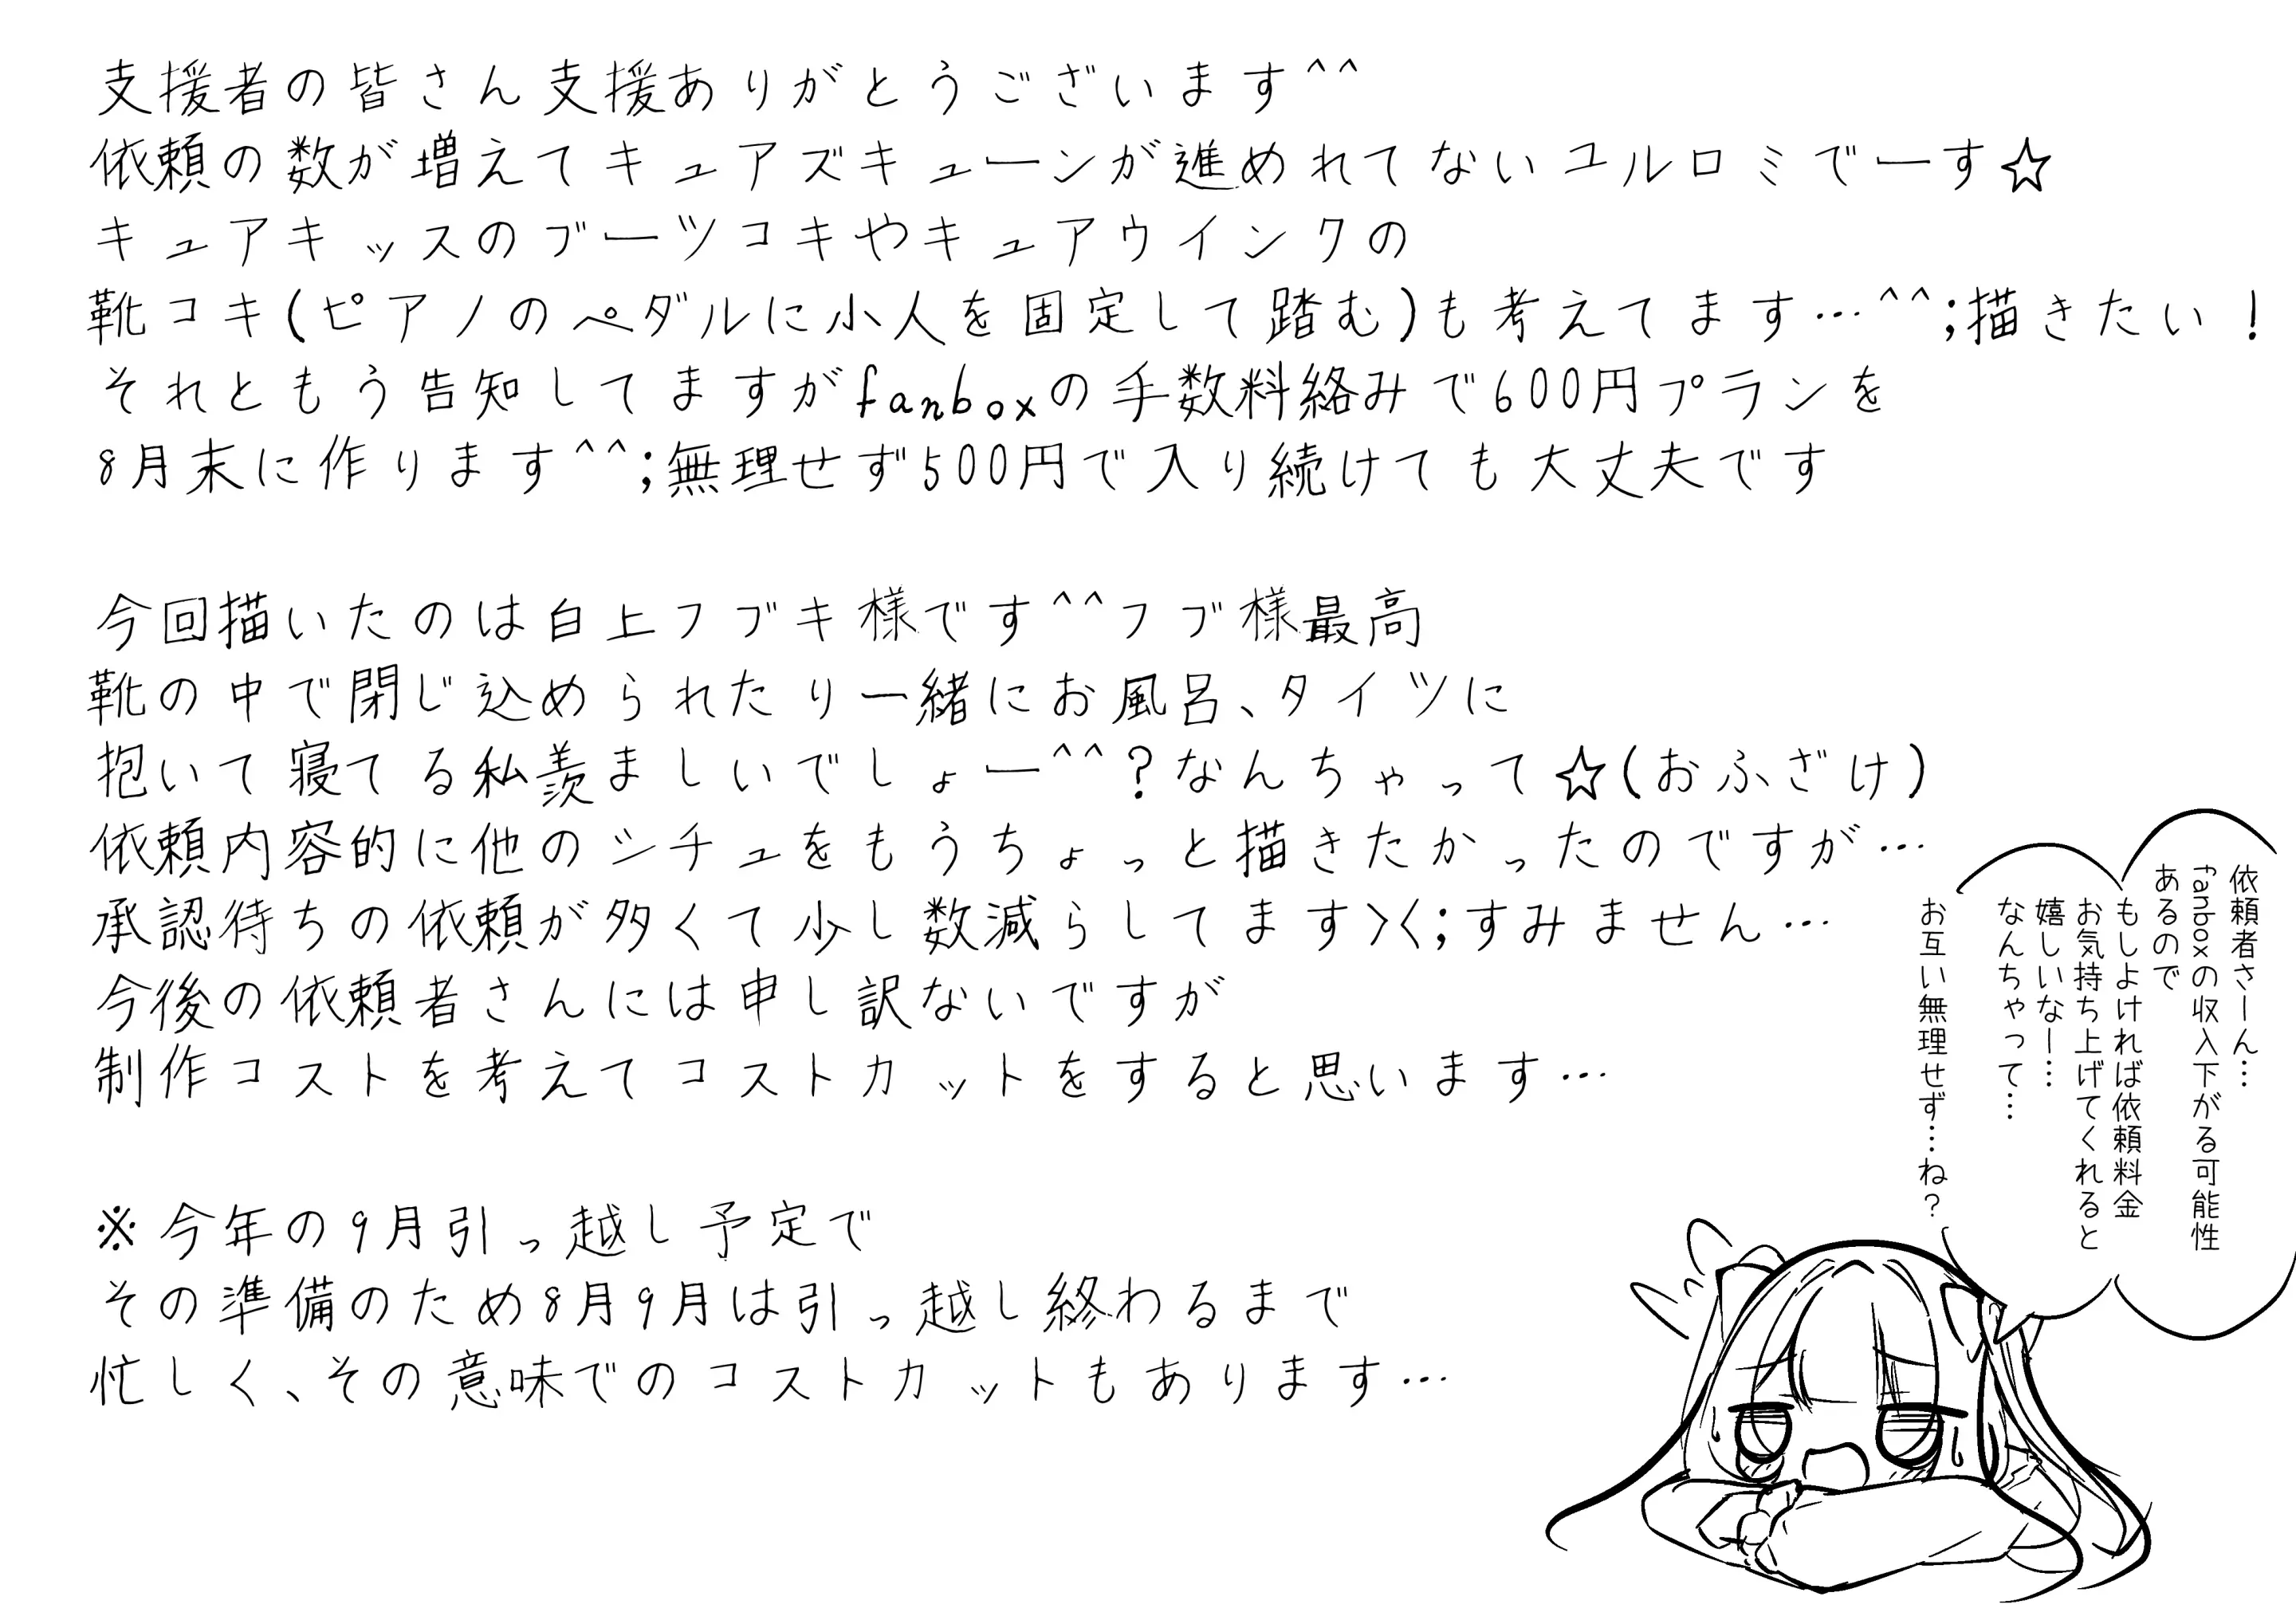 支援者の皆さん支援ありがとうございます^^
依頼の数が増えてキュアズキューンが進めれてないユルロミでーす☆
キュアキッスのブーツコキやキュアウインクの
靴コキ(ピアノのペダルに小人を固定して踏む)も考えてます…^^;描きたい!
それともう告知してますがfanboxの手数料絡みで600円プランを
8月末に作ります^^;無理せず500円で入り続けても大丈夫です
今回描いたのは白上フブキ様です^^フブ様最高
靴の中で閉じ込められたり一緒にお風呂、タイツに
抱いて寝てる私羨ましいでしょー^^?なんちゃって☆(おふざけ)
依頼内容的に他のシチュをもうちょっと描きたかったのですが…
承認待ちの依頼が多くて少し数減らしてます><;すみません…
今後の依頼者さんには申し訳ないですが
制作コストを考えてコストカットをすると思います…
※今年の9月引っ越し予定で
その準備のため8月9月は引っ越し終わるまで
忙しく、その意味でのコストカットもあります…
依頼者さーん…
fanboxの収入下がる可能性
あるので
もしよければ依頼料金
お気持ち上げてくれると
嬉しいなー…
なんちゃって…
お互い無理せず…ね?